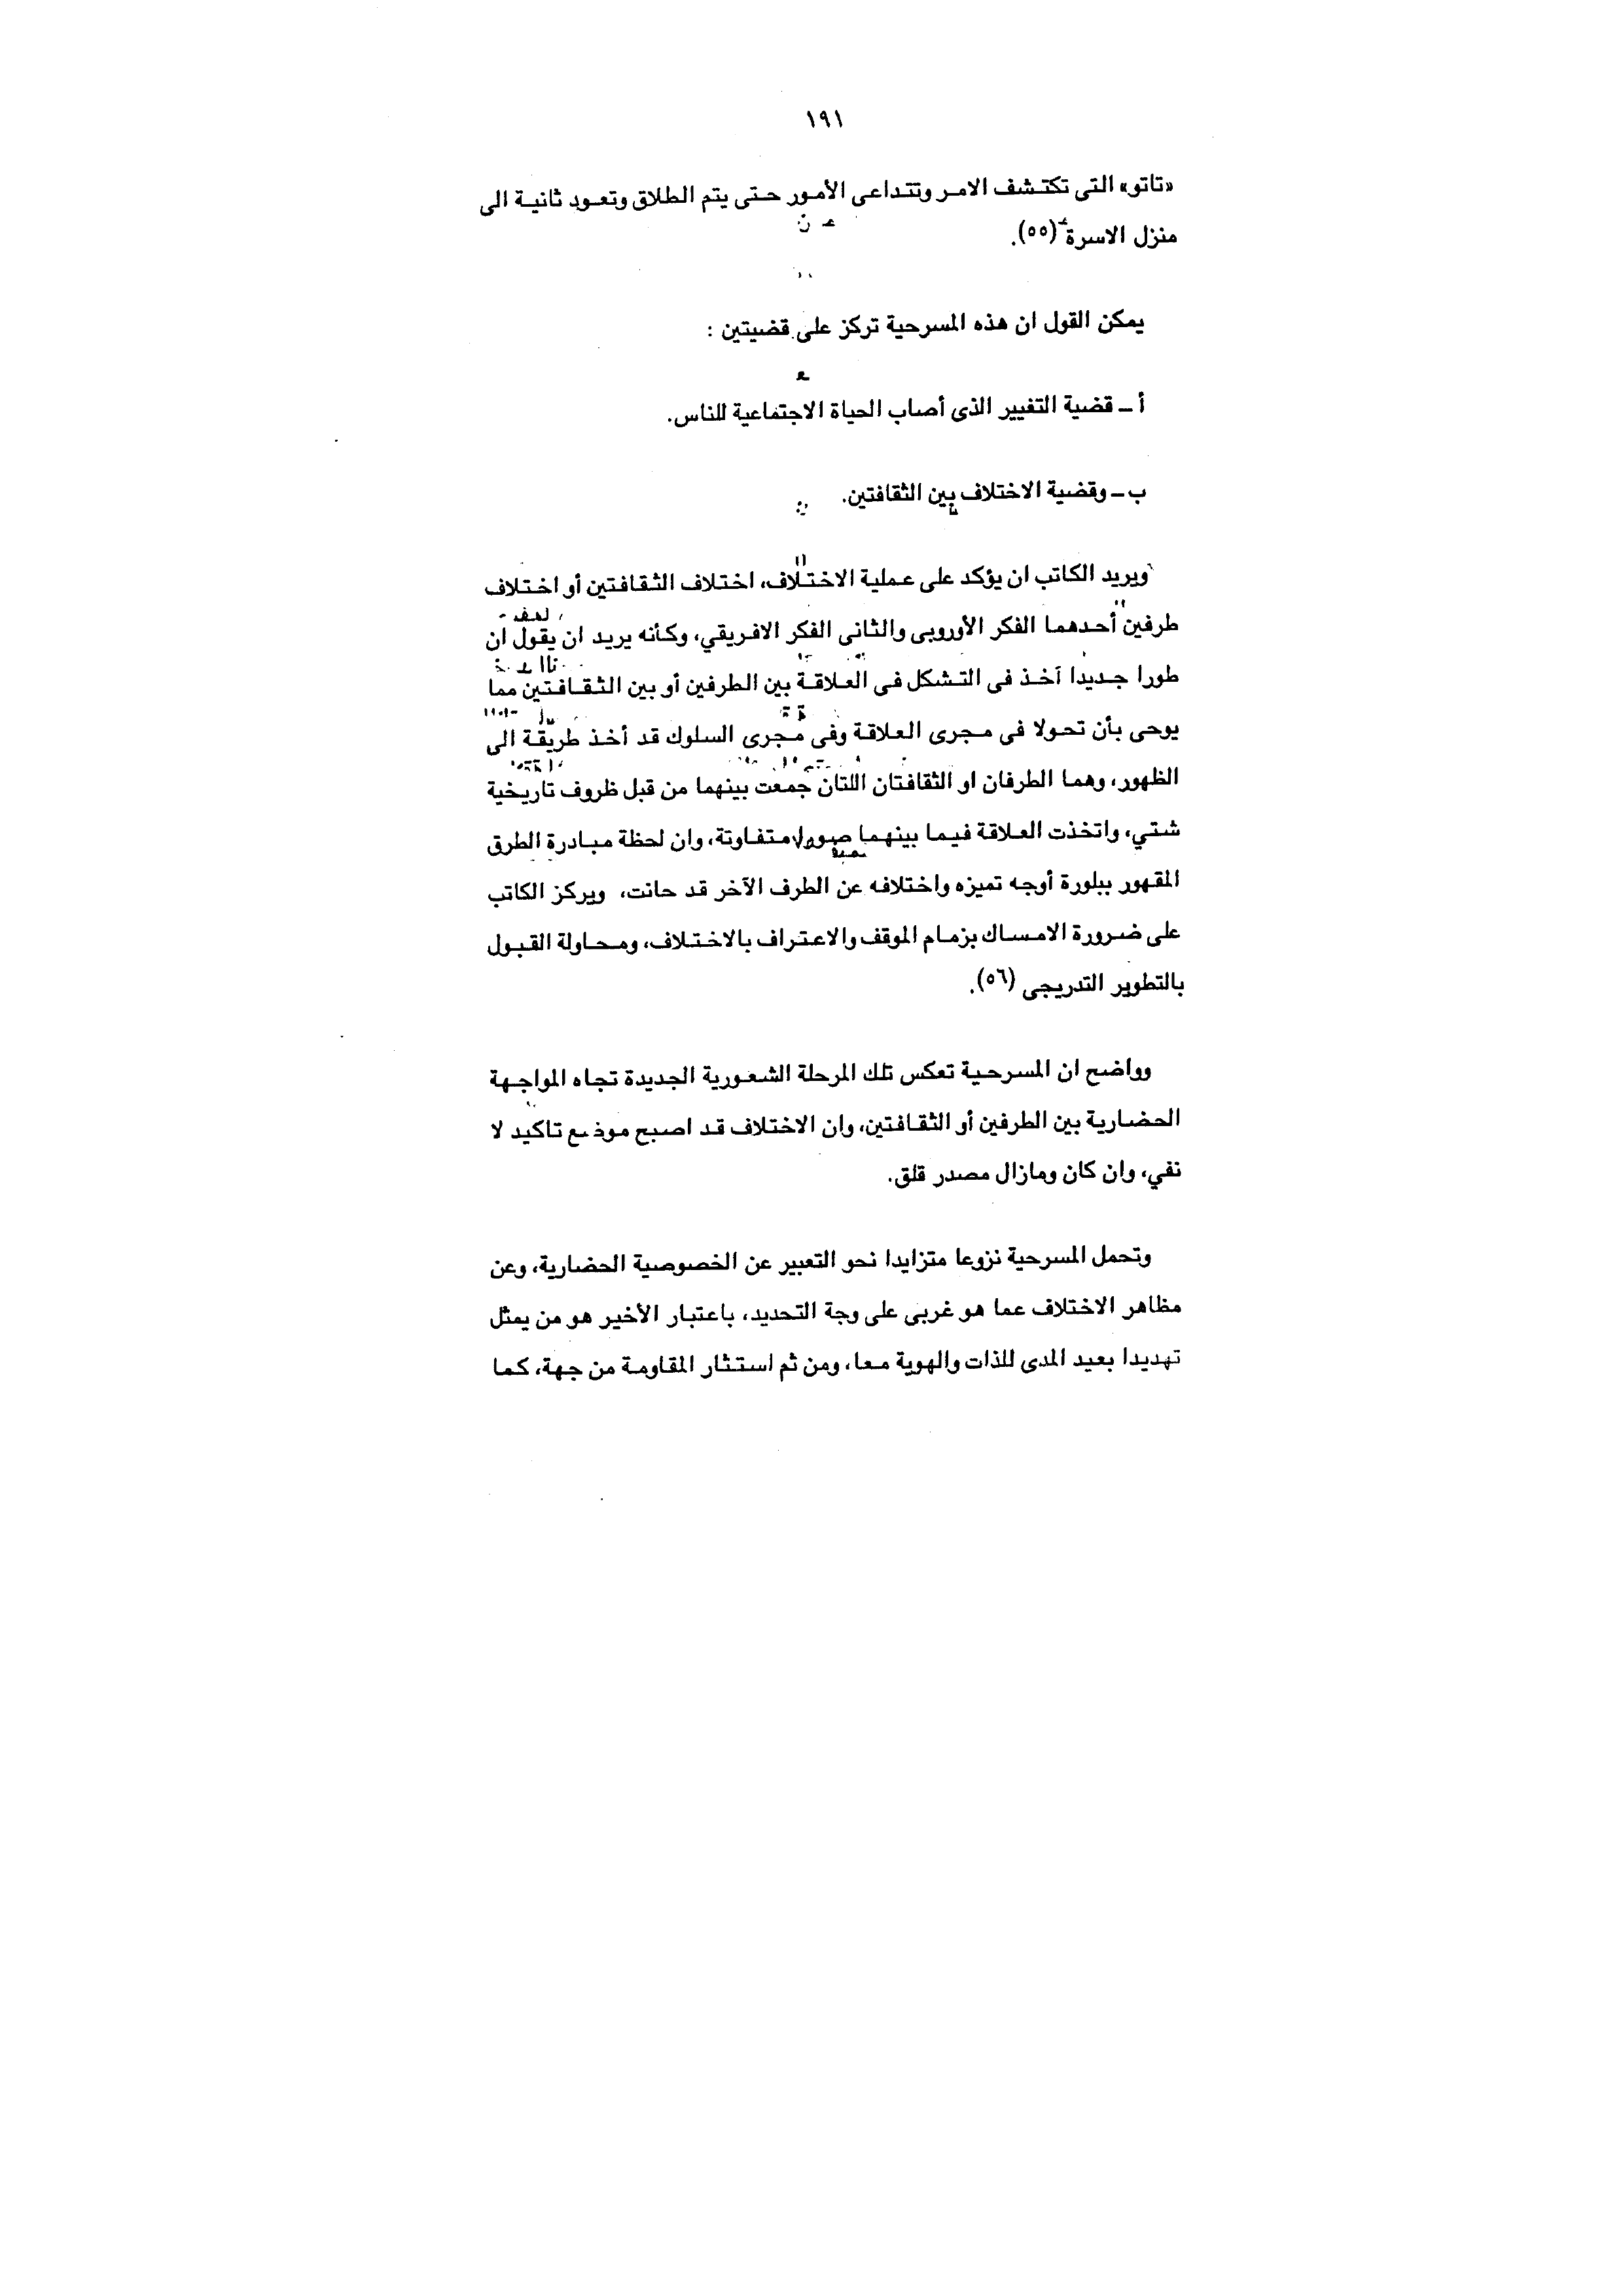 ١٩١
«تاتو» التى تكتشف الامر وتتداعى الأمور حتى يتم الطلاق وتعود ثانية الى
منزل الاسرة (٥٥).
يمكن القول ان هذه المسرحية تركز على قضيتين :
أ ــ قضية التغيير الذى أصاب الحياة الاجتماعية للناس.
ب ــ وقضية الاختلاف بين الثقافتين.
ويريد الكاتب ان يؤكد على عملية الاختلاف، اختلاف الثقافتين أو اختلاف
طرفين أحدهما الفكر الأوروبى والثانى الفكر الافريقي، وكأنه يريد ان يقول ان
طورا جديدا آخذ فى التشكل فى العلاقة بين الطرفين أو بين الثقافتين مما
يوحى بأن تحولا فى مجرى العلاقة وفى مجرى السلوك قد أخذ طريقة الى
الظهور، وهما الطرفان او الثقافتان اللتان جمعت بينهما من قبل ظروف تاريخية
شتي، واتخذت العلاقة فيما بينهما صورا متفاوتة، وان لحظة مبادرة الطرق
المقهور ببلورة أوجه تميزه واختلافه عن الطرف الآخر قد حانت، ويركز الكاتب
على ضرورة الامساك بزمام الموقف والاعتراف بالاختلاف، ومحاولة القبول
بالتطوير التدريجى (٥٦).
وواضح ان المسرحية تعكس تلك المرحلة الشعورية الجديدة تجاه المواجهة
الحضارية بين الطرفين أو الثقافتين، وان الاختلاف قد اصبح موضع تاكيد لا
نفي، وان كان ومازال مصدر قلق.
وتحمل المسرحية نزوعا متزايدا نحو التعبير عن الخصوصية الحضارية، وعن
مظاهر الاختلاف عما هو غربى على وجة التحديد، باعتبار الأخير هو من يمثل
تهديدا بعيد المدى للذات والهوية معا، ومن ثم استثار المقاومة من جهة، كما